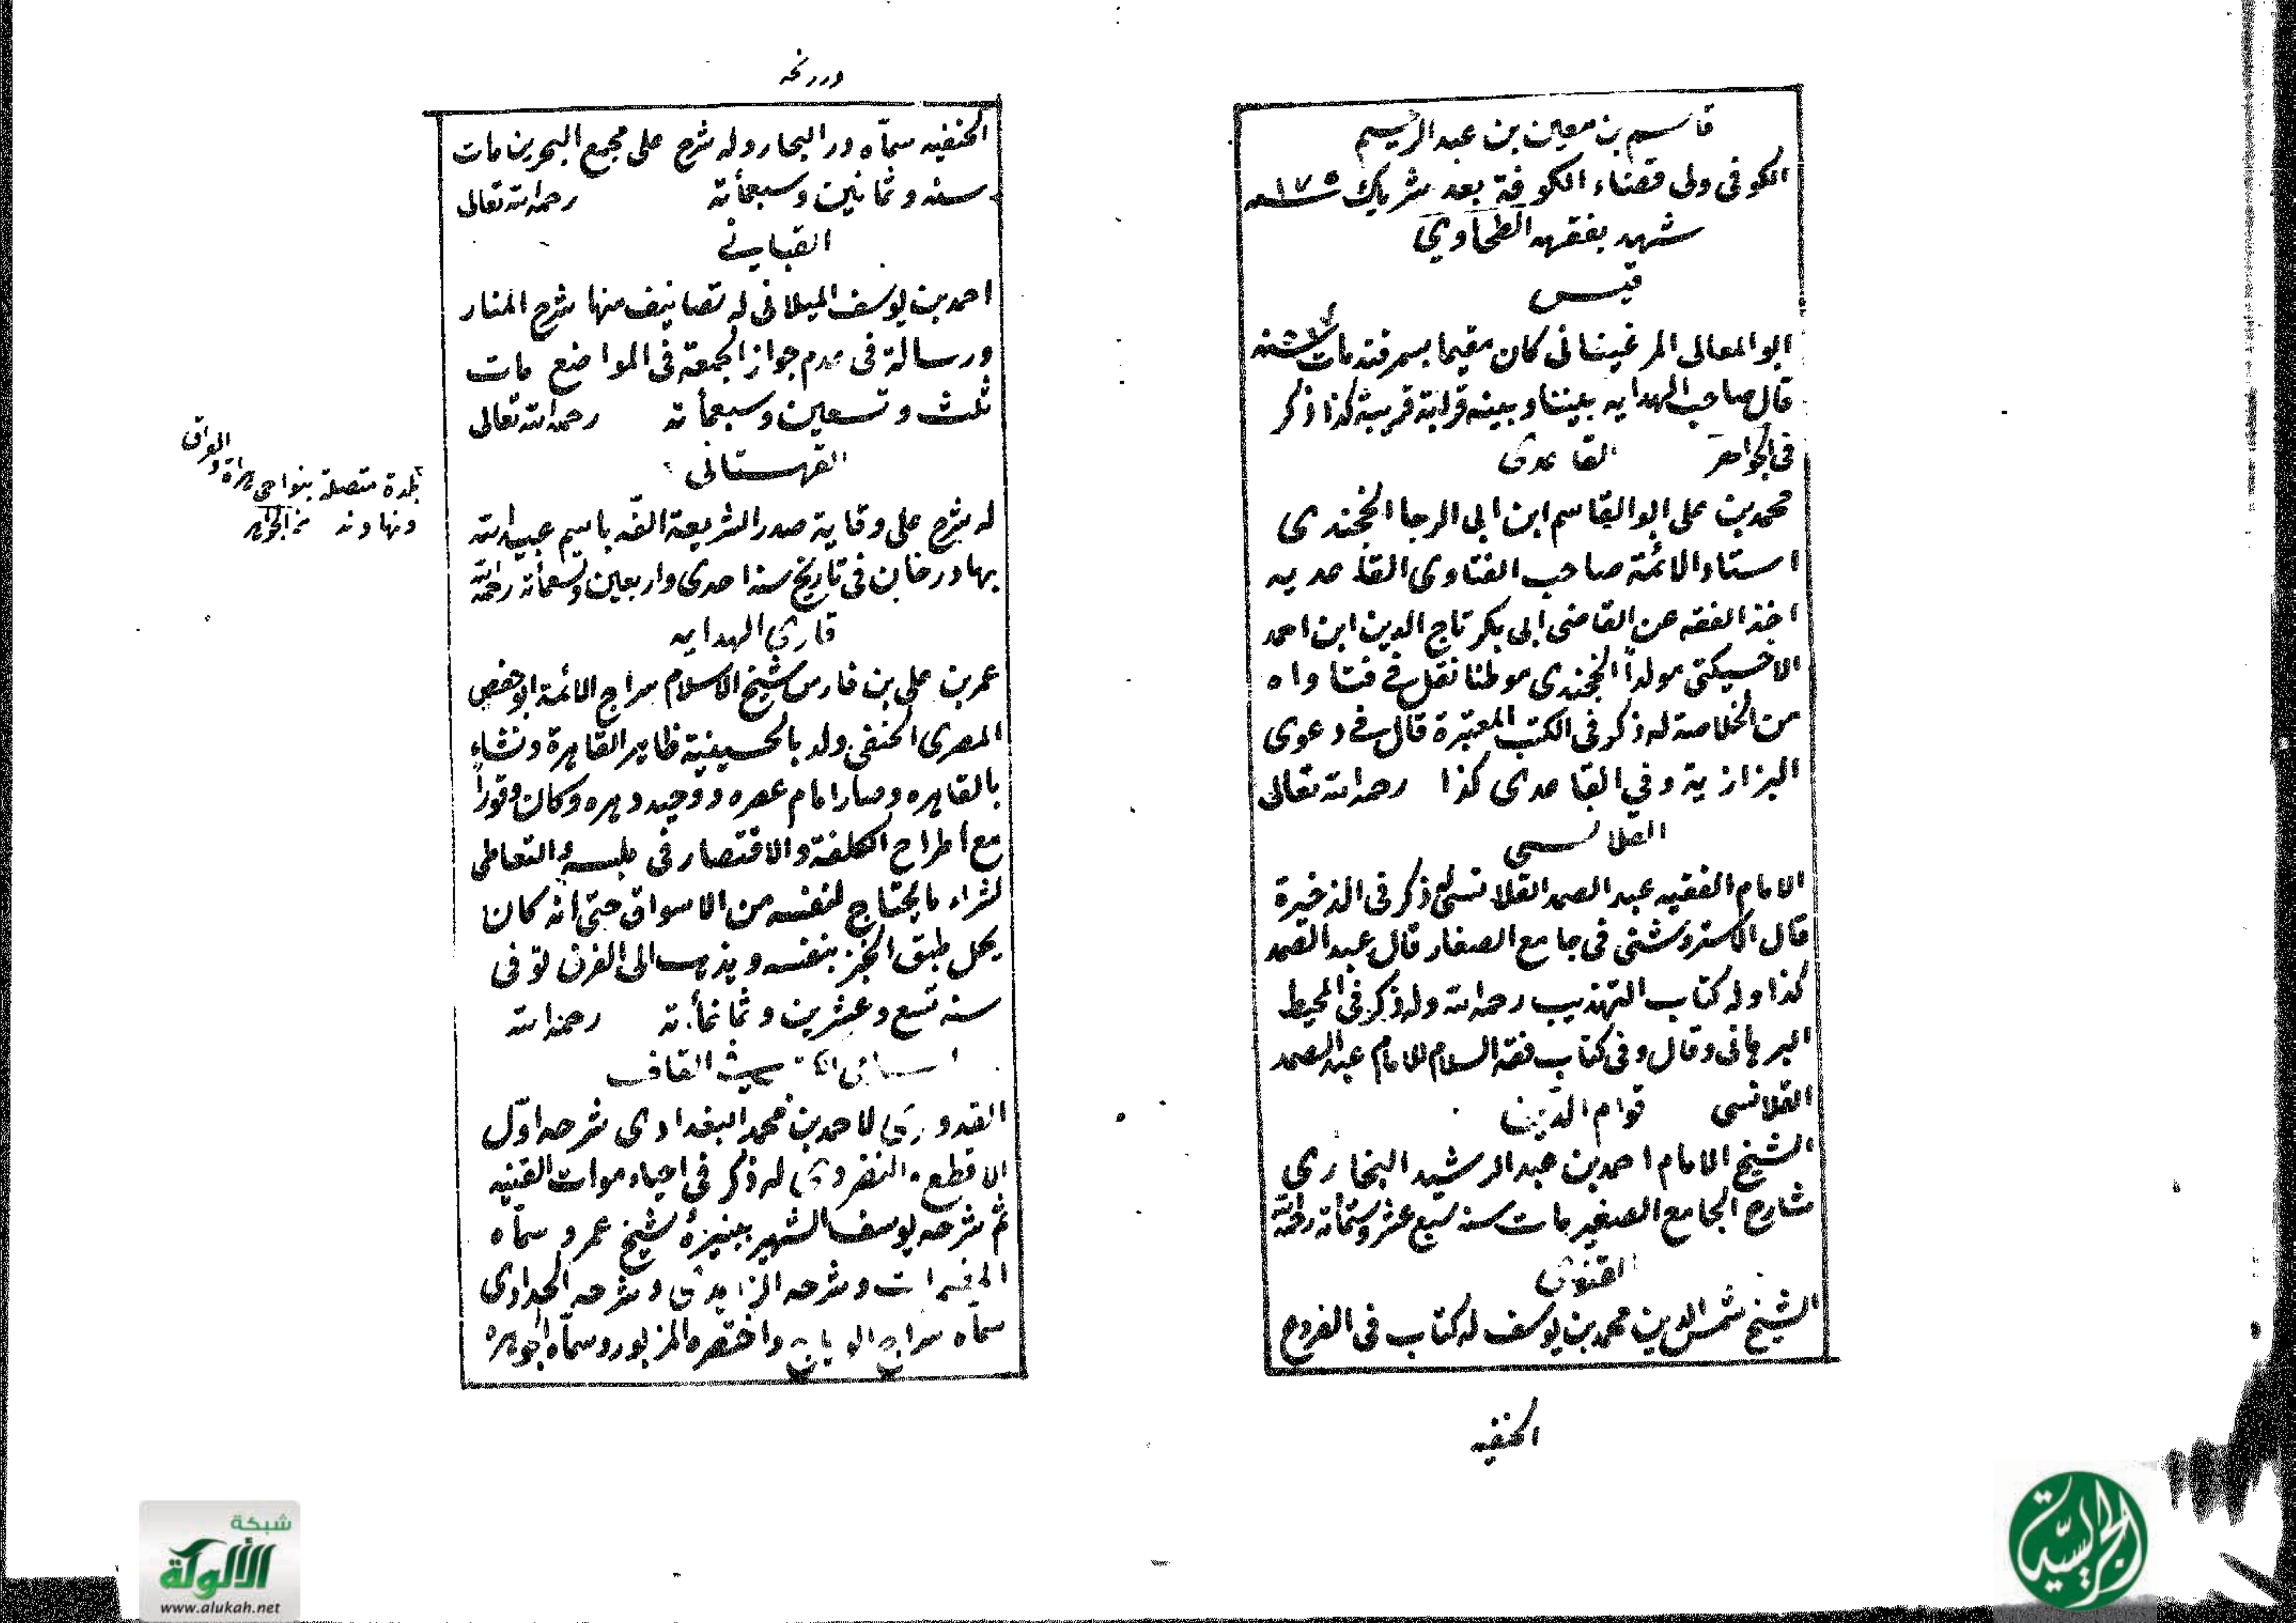 قاسم بن معين بن عبد الرحيم
الكوفى ولى قضاء الكوفة بعد شريك ١٧٥ سنه
شهد بفقهه الطحاوي
قيس
ابو المعالى المرغينانى كان مقيما بسمرقند مات سنه
قال صاحب الهدايه بيننا وبينه قرابة قريبة كذا ذكر
فى الجواهر القاعدى
محمد بن على ابو القاسم ابن ابى الرجا الخجندى
استاد الائمة صاحب الفتاوى القاعديه
اخذ الفقه عن القاضى ابى بكر تاج الدين ابن احمد
الاخسيكتى مولداً الخجندى موطنا نقل في فتاواه
من الخلاصة له ذكر فى الكتب المعتبرة قال في دعوى
البزازية وفي القاعدى كذا رحمه الله تعالى
القلانسي
الامام الفقيه عبد الصمد القلانسى ذكر فى الذخيرة
قال الاستروشنى فى جامع الصغار قال عبد الصمد
كذا وله كتاب التهذيب رحمه الله وله ذكر فى المحيط
البرهانى وقال وفى كتاب فقه السلام للامام عبد الصمد
القلانسى قوام الدين
الشيخ الامام احمد بن عبد الرشيد البخارى
شارح الجامع الصغير مات سنه سبع عشر وستمأنة رحمه الله
القنوى
الشيخ شمس الدين محمد بن يوسف له كتاب فى الفروع
الحنفيه
الحنفيه سمّاه درر البحار وله شرح على مجمع البحرين مات
سنه وثمانين وسبعمأته رحمه الله تعالى
القبابي
احمد بن يوسف الميلانى له تصانيف منها شرح المنار
ورسالة فى عدم جواز الجمعة فى المواضع مات
ثلث وتسعين وسبعمأته رحمه الله تعالى
القهستانى
له شرح على وقاية صدر الشريعة الفّه باسم عبيد الله
بهادرخان فى تاريخ سنة احدى واربعين وتسعمأنة رحمه الله
قارى الهدايه
عمر بن على بن فارس شيخ الاسلام سراج الائمة ابو حفص
المصرى الحنفى ولد بالحسينية ظاهر القاهرة ونشاء
بالقاهره وصار امام عصره ووحيد دهره وكان وقوراً
مع اطراح الكلفة والاقتصار فى ملبسه والتعاطى
لشراء ما يحتاج لنفسه من الاسواق حتى انه كان
يحمل طبق الخبز بنفسه ويذهب الى الفرن توفى
سنه تسع وعشرين وثمانمأته رحمه الله
القاف
القدورى لاحمد بن محمد البغدادى شرحه اوّل
الاقطع له ذكر فى احياء موات القنيه
ثم شرحه يوسف الشهير بنبيرۀ شيخ عمر وسمّاه
المضمرات وشرحه الزاهدى وشرحه الحدادى
سمّاه سراج الوهاج واختصره المزبور وسمّاه الجوهرة
بلدة متصلة بنواحى هراة والعراق
ونهاوند من الجواهر
شبكة
الألوكة
www.alukah.net